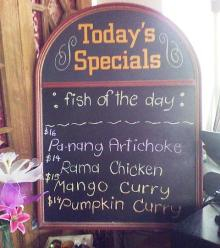 Today's
Specials
fish of the day
$16
Panang Artichoke
$14
Rama Chicken
$15
Mango Curry
$14
Pumpkin Curry